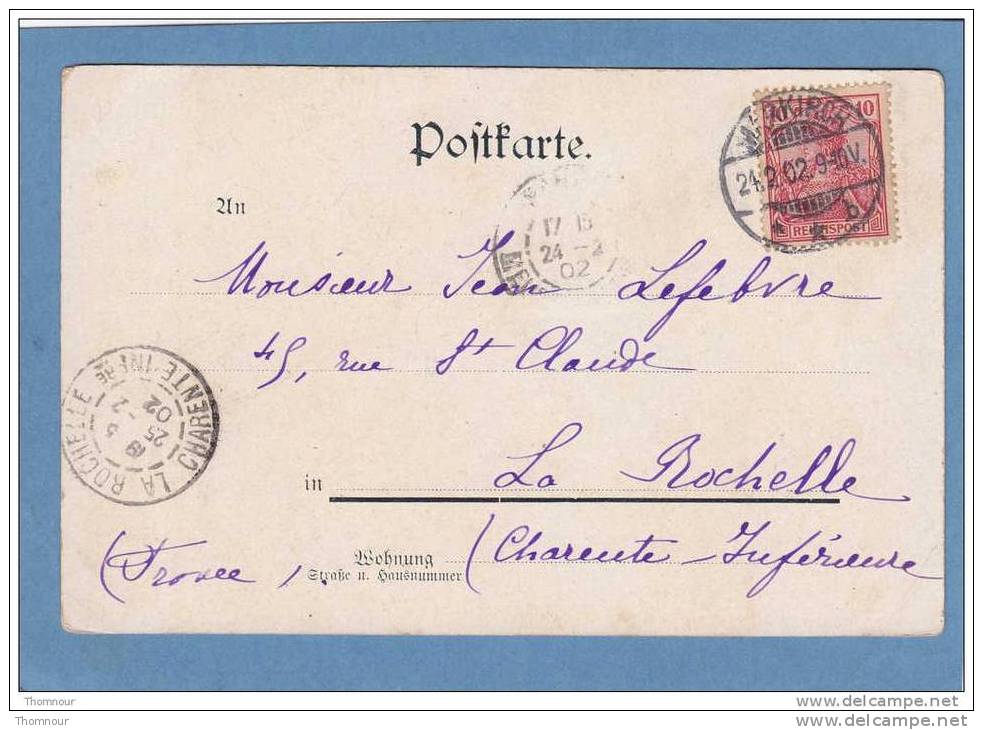 Postkarte.
10
MARKIRCH
24.2.02.9-10V.
* * b
REICHSPOST
An
17 15
24 -2
02
Monsieur Jean Lefebvre
45, rue St Claude
LA ROCHELLE
CHARENTE-INFRE
19 5
25 -2
02
in La Rochelle
(Charente-Inférieure
Wohnung
Straße u. Hausnummer
(France).
Thomnour
www.delcampe.net
Thomnour
www.delcampe.net